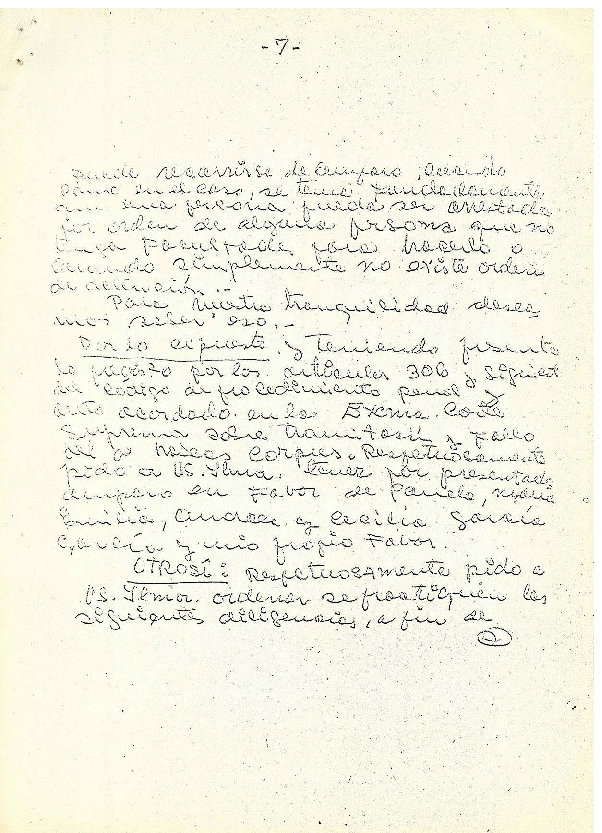 - 7 -
puede recurrirse de amparo, cuando
como en el caso, se teme fundadamente
que una persona pueda ser arrestada
por orden de alguna persona que no
tenga facultades para hacerlo o
cuando simplemente no existe orden
de detención. -
Para nuestra tranquilidad desea
mos saber eso. -
Por lo expuesto y teniendo presente
lo por los artículos 306 y siguient
del Código de procedimiento penal y
auto acordado en la Exma. Corte
Suprema sobre tramitación y Fallo
del Habeas Corpus. Respetuosamente
pido a US. Iltma. tener por presentado
amparo en favor de Pamela, María
Emilia, Andrea y Cecilia García
García y mio propio Favor.
OTROSÍ: Respetuosamente pido a
US. Iltma. ordenar se practiquen las
siguientes diligencias, a fin de